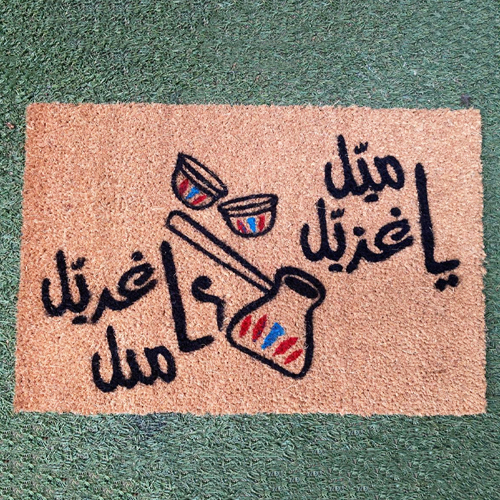 ميّل
يا غزيّل
يا غزيّل
ميل